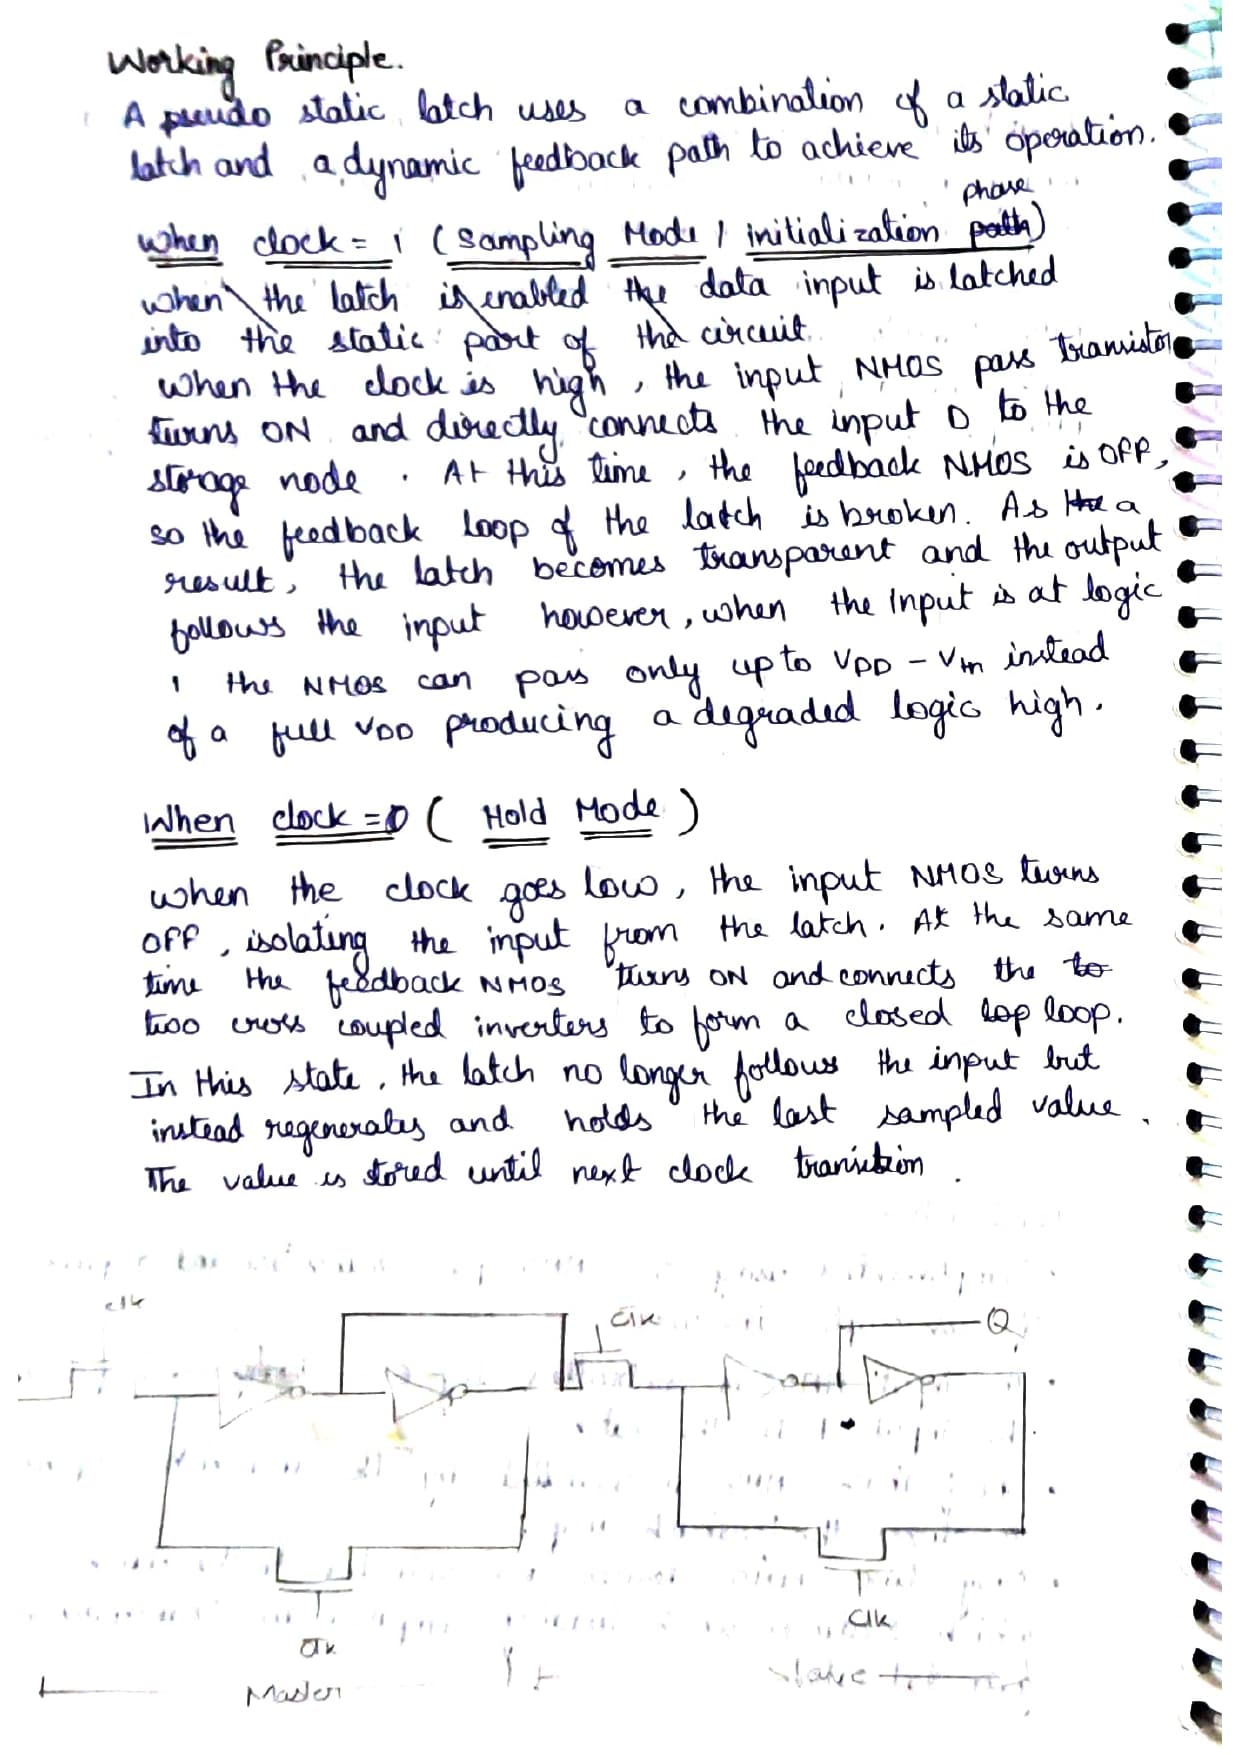 Working Principle.
A pseudo static latch uses a combination of a static
latch and a dynamic feedback path to achieve its operation.
phase
when clock = 1 (Sampling Mode / initialization path)
when the latch is enabled the data input is latched
into the static part of the circuit.
When the clock is high, the input NMOS pass transistor
turns ON and directly connects the input D to the
storage node. At this time, the feedback NMOS is OFF,
so the feedback loop of the latch is broken. As the a
result, the latch becomes transparent and the output
follows the input however, when the input is at logic
1 the NMOS can pass only up to VDD - Vtn instead
of a full VDD producing a degraded logic high.
When clock = 0 (Hold Mode)
when the clock goes low, the input NMOS turns
OFF, isolating the input from the latch. At the same
time the feedback NMOS turns ON and connects the to
two cross coupled inverters to form a closed lop loop.
In this state, the latch no longer follows the input but
instead regenerates and holds the last sampled value.
The value is stored until next clock transition.
clk
clk
Q
Clk
clk
Master
slave